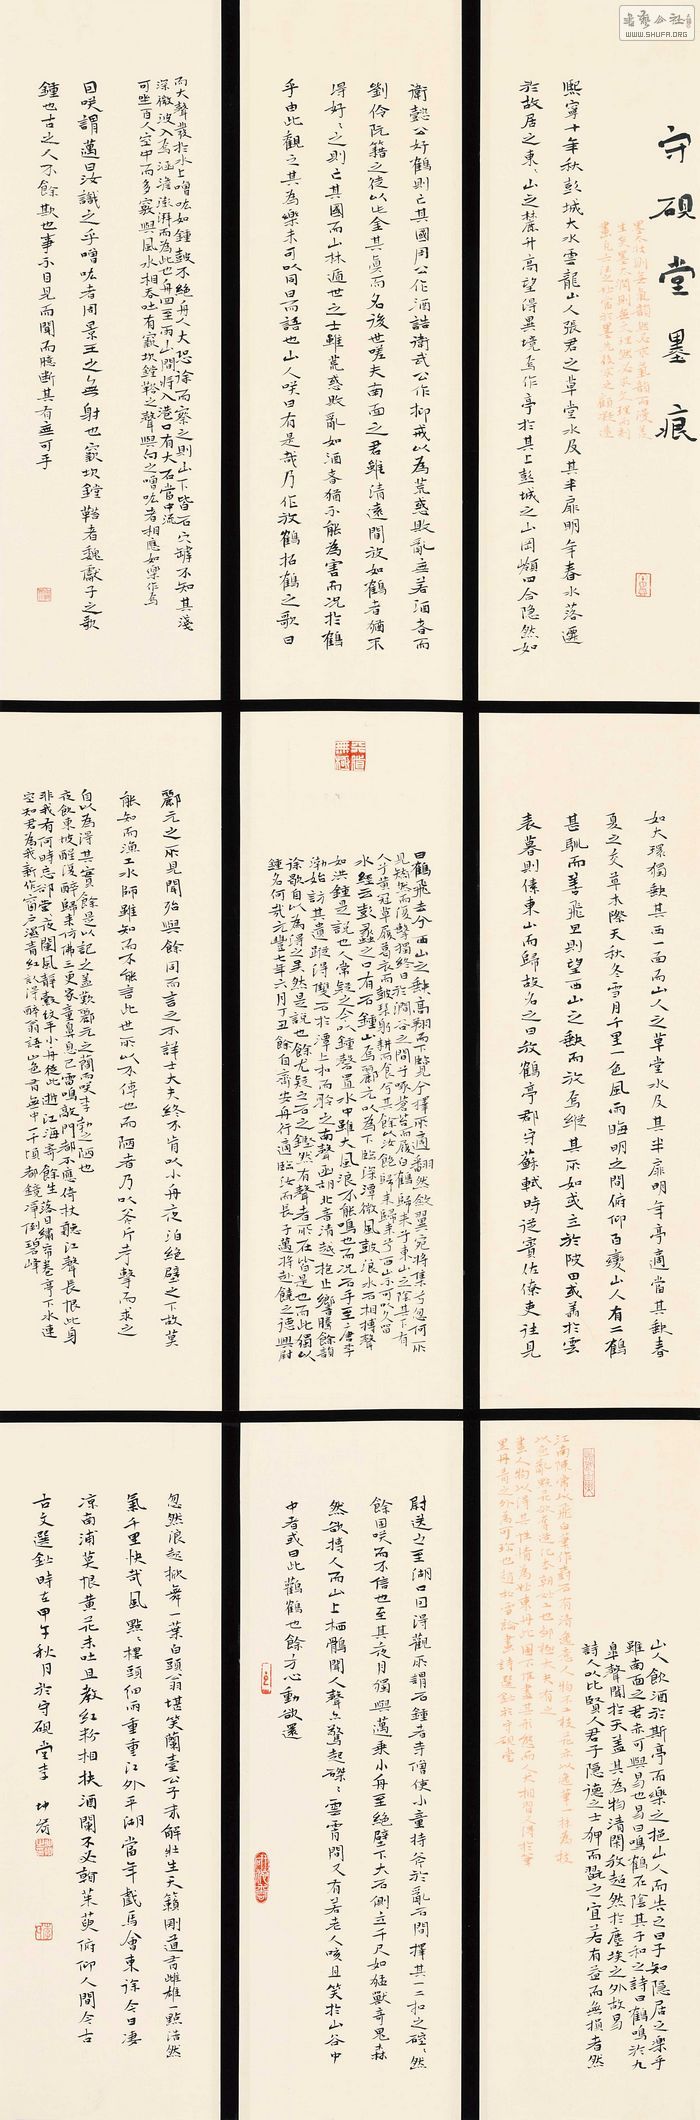 守硯堂墨痕
熙寧十年秋彭城大水雲龍山人張君之草堂水及其半扉明年春水落遷
於故居之東、山之麓升高望得異境焉作亭於其上彭城之山岡嶺四合隱然如
如大環獨缺其西一面而山人之草堂水及其半扉明年亭適當其缺春
夏之交草木際天秋冬雪月千里一色風雨晦明之間俯仰百變山人有二鶴
甚馴而善飛旦則望西山之缺而放焉縱其所如或立於陂田或翥於雲
表暮則傃東山而歸故名之曰放鶴亭郡守蘇軾時從賓佐僚吏往見
山人飲酒於斯亭而樂之挹山人而告之曰子知隱居之樂乎
雖南面之君未可與易也易曰鳴鶴在陰其子和之詩曰鶴鳴於九
皋聲聞於天蓋其為物清閑放超然於塵埃之外故易
詩人以比賢人君子隱德之士狎而翫之宜若有益而無損者然
衛懿公好鶴則亡其國周公作酒誥衛武公作抑戒以為荒惑敗亂無若酒者而
劉伶阮籍之徒以此全其真而名後世嗟夫南面之君雖清遠閒放如鶴者猶不
得好、之則亡其國而山林遁世之士雖荒惑敗亂如酒者猶不能為害而況於鶴
乎由此觀之其為樂未可以同日而語也山人咲曰有是哉乃作放鶴招鶴之歌曰
曰鶴飛去兮西山之缺高翔而下覽兮擇所適翻然斂翼宛將集兮忽何所
見矯然而復擊獨終日於澗谷之間兮啄蒼苔而履白鶴歸來兮東山之陰其下有
人兮黃冠草履葛衣而鼓琴躬耕而食兮其餘以汝飽歸來歸來兮西山不可以久留
水經云彭蠡之口有石鍾山焉酈元以為下臨深潭微風鼓浪水石相搏聲
如洪鍾是說也人常疑之今以鍾磬置水中雖大風浪不能鳴也而況石乎至唐李
渤始訪其遺蹤得雙石於潭上扣而聆之南聲函胡北音清越枹止響騰餘韻
徐歇自以為得之矣然是說也餘尤疑之石之鏗然有聲者所在皆是也而此獨以
鍾名何哉元豐七年六月丁丑餘自齊安舟行適臨汝而長子邁將赴饒之德興尉
尉送之至湖口因得觀所謂石鍾者寺僧使小童持斧於亂石間擇其一二扣之硿、然
餘固咲而不信也至其夜月獨與邁乘小舟至絕壁下大石側立千尺如猛獸奇鬼森
然欲搏人而山上栖鶻聞人聲亦驚起磔、雲霄間又有若老人咳且笑於山谷中
中者或曰此鸛鶴也餘方心動欲還
而大聲發於水上噌吰如鍾鼓不絕舟人大恐徐而察之則山下皆石穴罅不知其淺
深微波入焉涵澹澎湃而為此也舟回至兩山間將入港口有大石當中流
可坐百人空中而多竅與風水相吞吐有窾坎鏜鞳之聲與向之噌吰者相應如樂作焉
因咲謂邁曰汝識之乎噌吰者周景王之無射也窾坎鏜鞳者魏獻子之歌
鍾也古之人不餘欺也事不目見而聞而臆斷其有無可乎
酈元之所見聞殆與餘同而言之不詳士大夫終不肯以小舟夜泊絕壁之下故莫
能知而漁工水師雖知而不能言此世所以不傳也而陋者乃以斧斤考擊而求之
自以為得其實餘是以記之蓋歎酈元之簡而咲李渤之陋也
夜飲東坡醒復醉歸來仿佛三更家童鼻息已雷鳴敲門都不應倚杖聽江聲長恨此身
非我有何時忘卻營夜闌風靜縠紋平小舟從此逝江海寄餘生落日繡帘卷亭下水連
空知君為我新作窗戶濕青紅認得醉翁語山色有無中一千頃都鏡凈倒碧峰
忽然浪起掀舞一葉白頭翁堪笑蘭臺公子未解莊生天籟剛道有雌雄一點浩然
氣千里快哉風點、樓頭細雨重重江外平湖當年戲馬會東徐今日凄
凉南浦莫恨黃花未吐且教紅粉相扶酒闌不必看茱萸俯仰人間今古
古文選鈔時在甲午秋月於守硯堂李
WWW.SHUFA.ORG